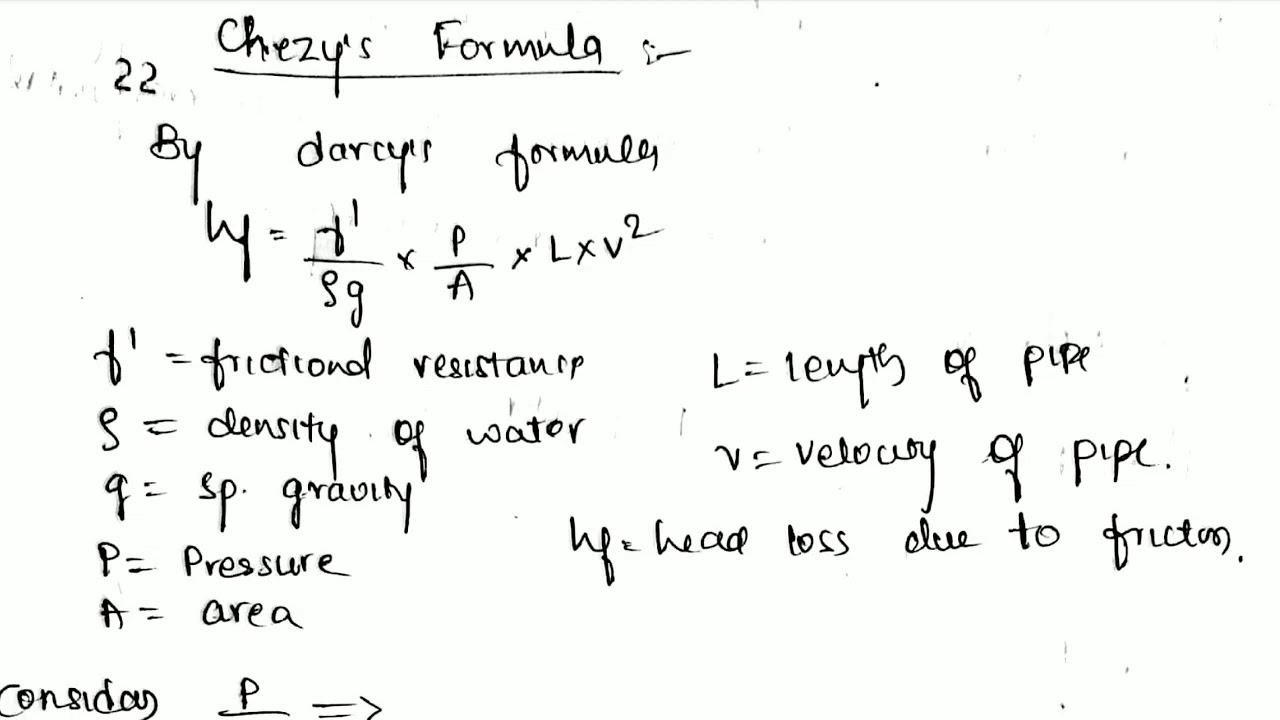 Chezy's Formula :-
22
By darcy's formula
hf = f'/ρg × P/A × L × V²
f' = frictional resistance
ρ = density of water
g = sp. gravity
P = Pressure
A = area
L = length of pipe
v = velocity of pipe.
hf = head loss due to friction.
Consider P =>